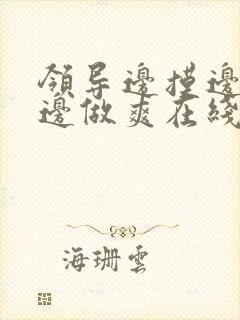 領导邊摸邊
邊做爽在綫
海珊雲